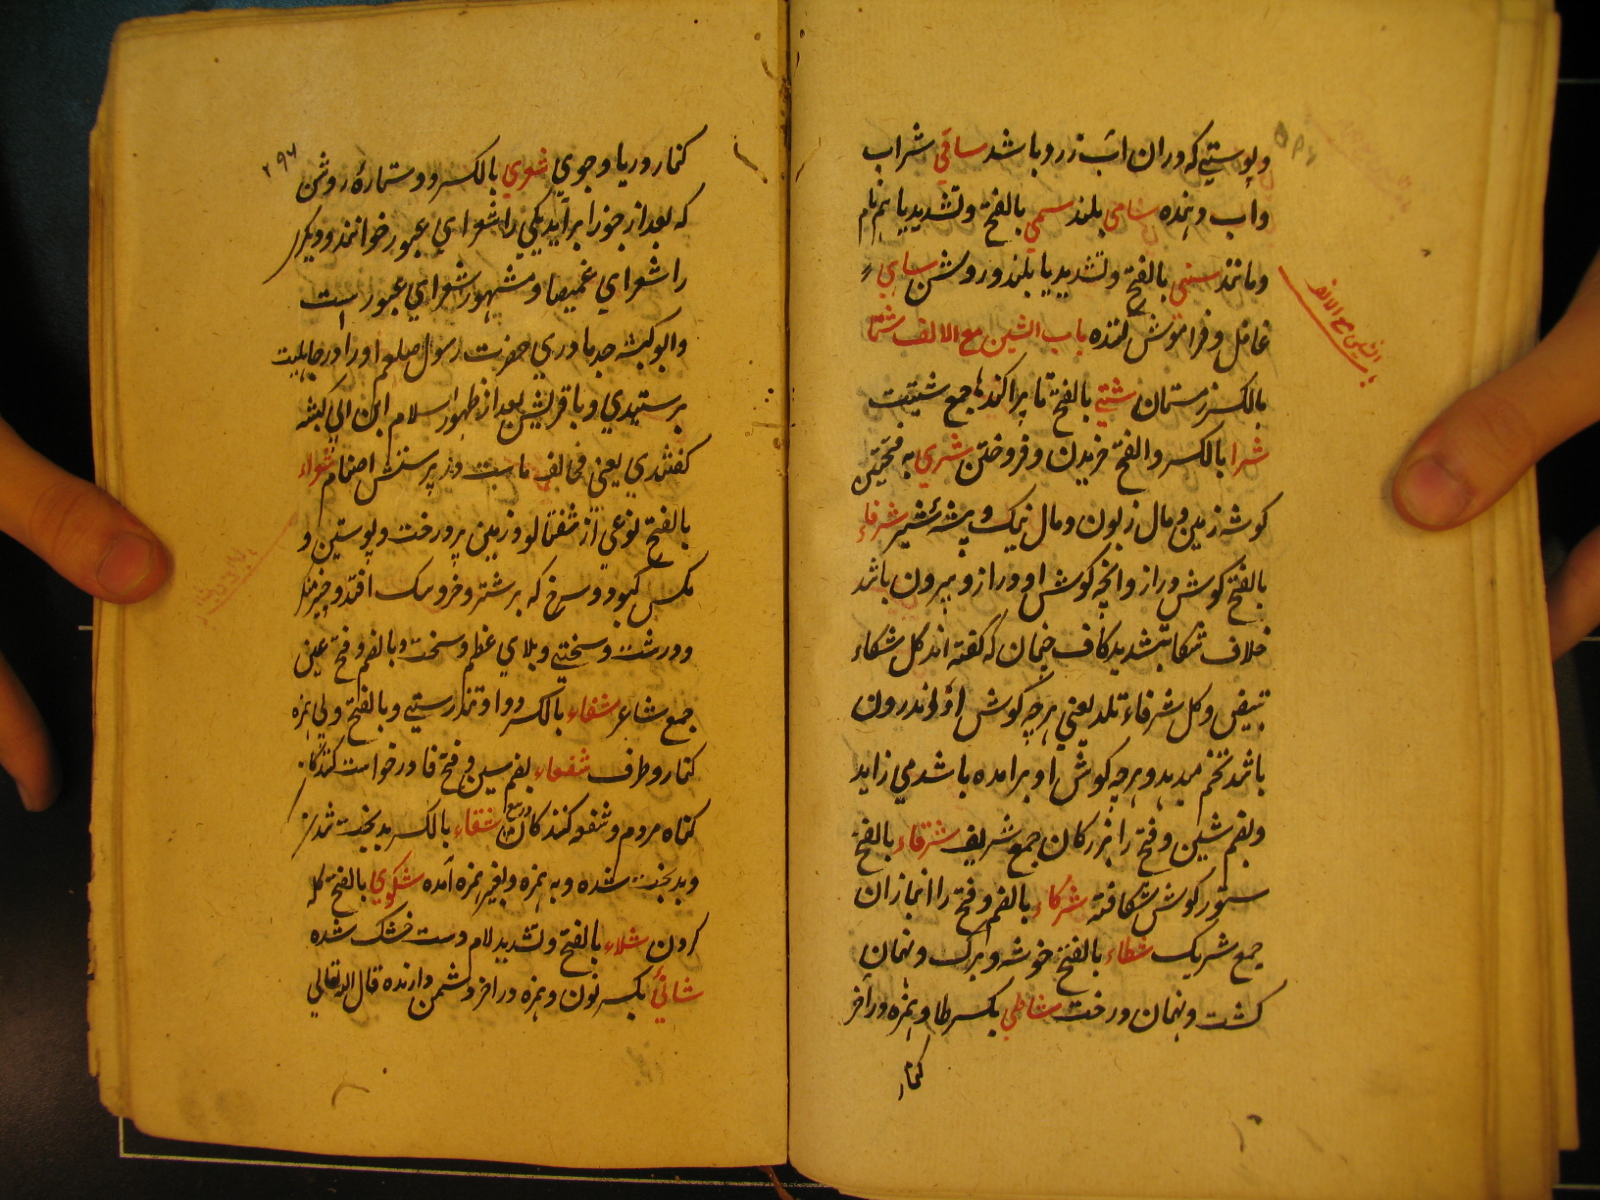 وپوستیے که دران اب زرد باشد ساقی شراب
واب دهنده سامی بلند سمی بالفتح وتشدید یا هم نام
ومانند سنی بالفتح وتشدید یا بلند وروشن ساہی
غافل وفراموش کننده باب الشین مع الالف شتا
باب الشین مع الالف
بالکسر زمستان شتے بالفتح تا پراکندها جمع شتیت
شرا بالکسر والفتح خریدن وفروختن شری به فتحتین
کوشه زمین ومال زبون ومال نیک وبیشه شیر شرفاء
بالفتح کوش دراز وانچه کوش او دراز وبیرون باشد
خلاف سکا بتشدید کاف چنان که کفته اند کل سکاء
تبیض وکل شرفاء تلد یعنی هرچه کوش او اندرون
باشد تخم میدهد وهرچه کوش او برامده باشد می زاید
وبضم شین وفتح را بزرکان جمع شریف شرقاء بالفتح
ستور کوش شکافته شرکاء بالضم وفتح را انبازان
جمع شریک شطاء بالفتح خوشه وبرک ونهان
کشت ونهان درخت شاطی بکسر طا وهمزه در اخر
کنار
۲۹۶
کنار دریا وجوی شعری بالکسر دو ستارهٔ روشن
که بعد از جوزا براید یکی را شعرای عبور خوانند ودیکر
را شعرای غمیصا ومشهور شعرای عبور است
وابو کبشه جد مادری حضرت رسول صلعم او را در جاهلیت
پرستیدی وبا قریش بعد از ظهور اسلام ابن ابی کبشه
کفتندی یعنی مخالف ماست در پرستش اصنام شعراء
بالفتح نوعی از شفتالو وزمین پر درخت وپوستین و
مکس کبود وسرخ که بر شتر وخر وسک افتد وچیز منکر
ودرشت وسختی وبلای عظیم وسخت وبالضم وفتح عین
جمع شاعر شفاء بالکسر دوا وتندرستی وبالفتح وبی همزه
کنار وطرف شفعاء بضم شین وفتح فا درخواست کنندکان
کناه مردم وشفعه کنندکان شقاء بالکسر بدبخت شدن
وبدبخت شده وبه همزه وبغیر همزه آمده شکوی بالفتح کله
کردن شلاء بالفتح وتشدید لام دست خشک شده
شانئ بکسر نون وهمزه در اخر دشمن دارنده قال الله تعالی